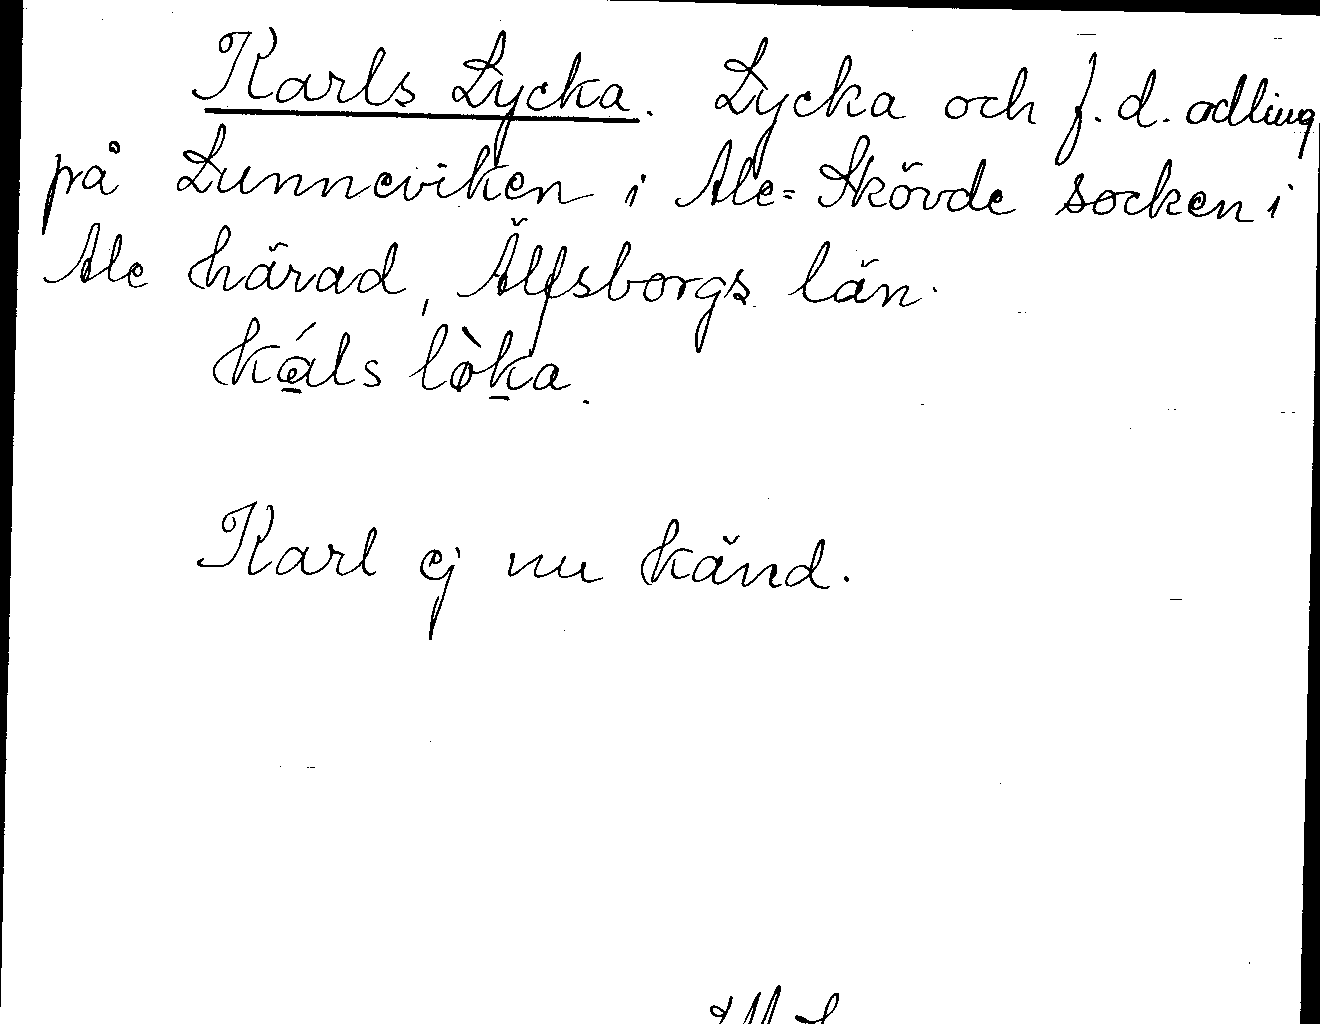 Karls Lycka. Lycka och f.d. odling
på Lunneviken i Ale=Skövde socken i
Ale härad, Älfsborgs län.
káls lòka.
Karl ej nu känd.